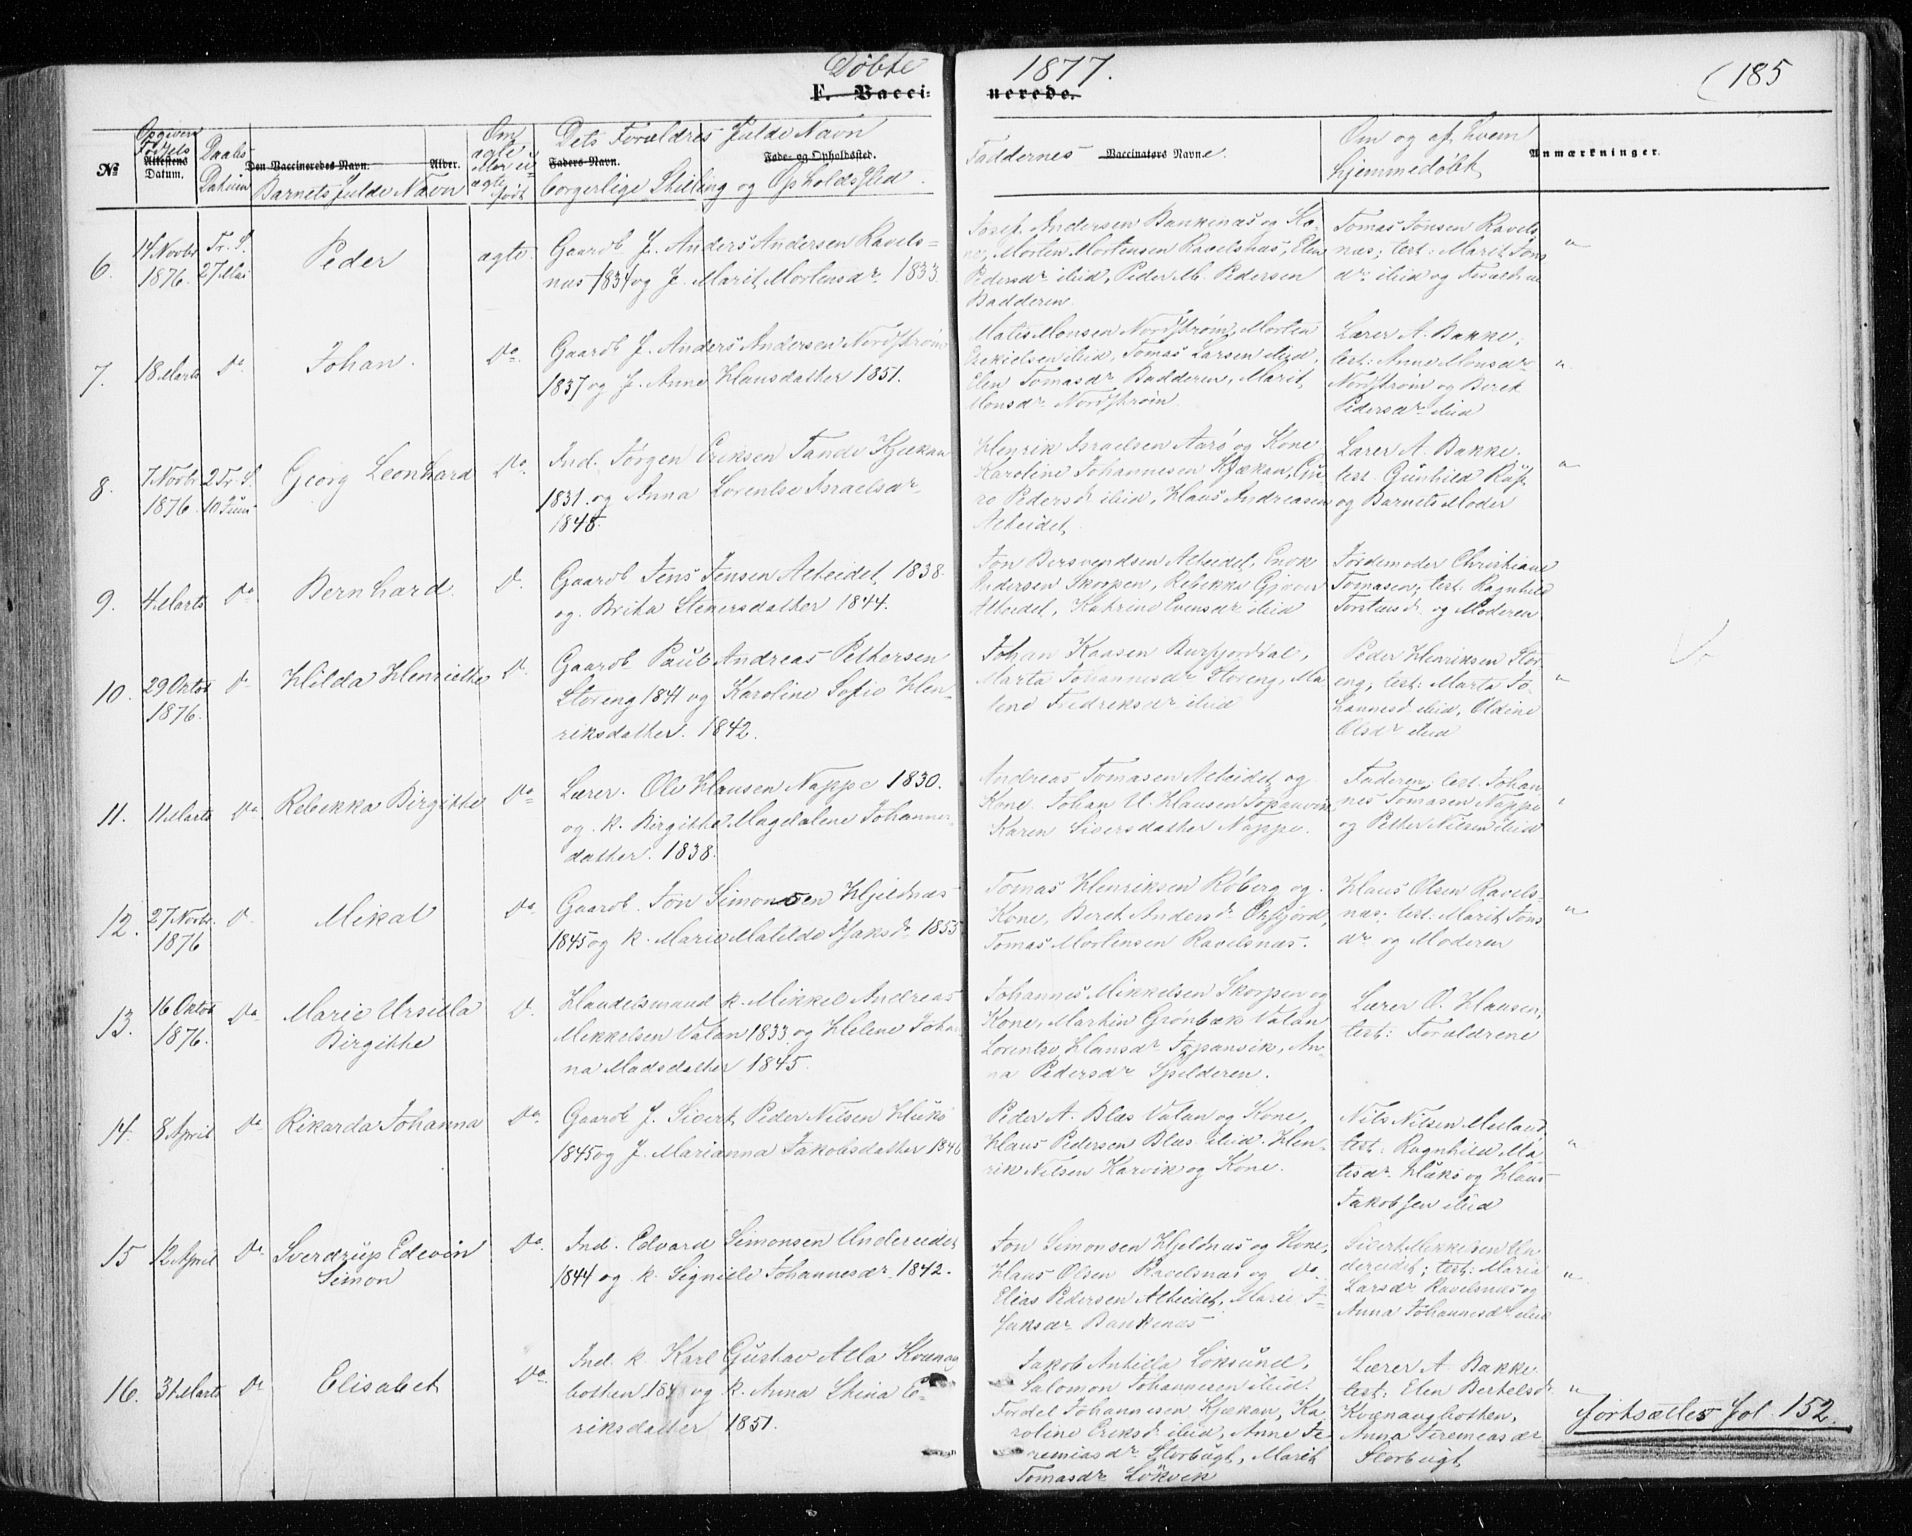 Døbte 1877.
185
F. Vaccinerede.
Opgiven Fødsels
Attestens Datum.
Daabs Datum
No
Den Vaccineredes Navn. Alder.
Barnets fulde Navn
Om ægte eller uægte født
Dets Forældres fulde Navn
Faders Navn. Føde- og Opholdssted.
borgerlige Stilling og Opholdssted.
Faddernes Vaccinators Navn
Om og af hvem
hjemmedøbt
Anmærkninger.
6. 14 Novbr 1876. Tr. S. 27 Mai Peder ægte.
Gaardb. f. Anders Andersen Ravels=
nas 1834 og f. Marit Mortensdr. 1833.
Josef Andersen Bankenas og Ko-
ne, Morten Mortensen Ravelsnas, Elen
Pedersdr ibid, Peder M. Pedersen
Badderen.
Tomas Jonsen Ravels
nas; test: Marit Jons
dr. ibid og
"
7. 18 Marts Do Johan. Do.
Gaardb. f. Anders Andersen Nordstrøm
1837 og f. Anne Hansdatter 1851.
Mats Monsen Nordstrøm, Morten
ibid, Tomas Larsen ibid,
Elen Tomasdr Badderen, Marit
Monsdr Nordstrøm.
Lærer A. Bakke;
test: Anne Monsdr
Nordstrøm og Beret
Pedersdr ibid
"
8. 7 Novbr 1876. 2 Tr. S. 10 Juni Georg Leonhard Do.
Ind. Jørgen Eriksen Tande Kjækan
1831. og Anna Lorentse Israelsdr.
1848.
Henrik Israelsen Aarø og Kone
Karoline Johannesen Kjækan, Gu-
ro Pedersdr ibid, Hans Andreasen
Alteidet.
Lærer A. Bakke.
test. Gunhild
og Barnets Moder
"
9. 4 Marts Do Bernhard. D.
Gaardb. Jens Jensen Alteidet 1838.
og. Brita Stenersdatter 1844.
Jon Bersvendsen Alteidet, Enok
Andersen Skorpen, Rebekka
Alteidet, Katrine Evensdr ibid
Jordemoder Christiane
Tomasen; test: Ragnhild
og Moderen
10. 29 Oktob 1876. D. Hilda Henriette D.
Gaardb. Paul Andreas Pettersen
Storeng 1841 og Karoline Sofie Hen-
riksdatter. 1842.
Johan Kaasen Burfjorddal,
Marta Johannesdr Storeng, Ma
lene Fredriksdr ibid
Peder Henriksen Stor
eng; test: Marta Jo-
hannesd ibid, Oldine
Olsdr ibid
"
11. 11 Marts Do Rebekka Birgitte Do
Lærer. Ole Hansen Nappe 1830.
og. k. Birgitte Magdalene Johannes-
datter. 1838.
Andreas Tomasen Alteidet og
Kone. Johan U. Hansen Toppanvik
Karen Siversdatter Nappe.
Faderen; test. Johan
nes Tomasen Nappe
og Petter Nilsen ibid
"
12. 27 Novbr. 1876 D. Mikal Do.
Gaardb. Jon Simonsen Hjeldnæs
1845 og k. Marie Matilde Isaksdr. 1855
Tomas Henriksen Røberg og
Kone, Beret Andersdr Oxfjord,
Tomas Mortensen Ravelsnas.
Hans Olsen Ravels-
nas; test: Marit Jons
dr og Moderen
"
13. 16 Oktob 1876. Do Marie Ursilla
Birgitte D.
Handelsmand k. Mikkel Andreas
Mikkelsen Valan 1833 og Helene Johan
na Madsdatter 1845.
Johannes Mikkelsen Skorpen og
Kone, Martin Grønbæk Valan
Lorentse Hansdr Toppanvik, An-
na Pedersdr Spilderen.
Lærer O. Hansen;
test: Forældrene
14. 8 April Do Rikarda Johanna Do.
Gaardb f. Sivert Peder Nilsen Hukø
1845 og f. Marianna Jakobsdatter 1846
Peder A. Blæs Valan og Kone,
Hans Pedersen Blæs ibid. Hen-
rik Nilsen Karvik og Kone.
Nils Nilsen Meiland
test: Ragnhild Ma
tisdr. Hukø og Hans
Jakobsen ibid
"
15 12 April Do Sverdrup Edevin
Simon Do.
Ind. Edvard Simonsen Undereidet
1844 og k. Signille Johannesdr. 1842.
Jon Simonsen Hjeldnas og Kone,
Hans Olsen Ravelsnas og Do.
Elias Pedersen Alteidet, Marie I-
saksdr Bankenas
Sivert Mikkelsen Un
dereidet; test: Maria
Larsdr Ravelsnas og
Anna Johannesdr ibid
"
16. 31 Marts Do Elisabet Do.
Ind. k. Karl Gustav Alla Kvænang
botten og k. Anna Stina E-
riksdatter 1851.
Jakob Antilla Løksund,
Salomon Johannesen ibid.
Fordel Johannesen Kjækan, Ka-
roline Eriksd ibid, Anne Je
remiasdr Storbugt, Marit
Tomasdr Løkvik
Lærer A. Bakke
test: Elen Bertelsdr
Kvænangbotten,
Anna Jeremiasdr
Storbugt
"
fortsættes fol. 152.